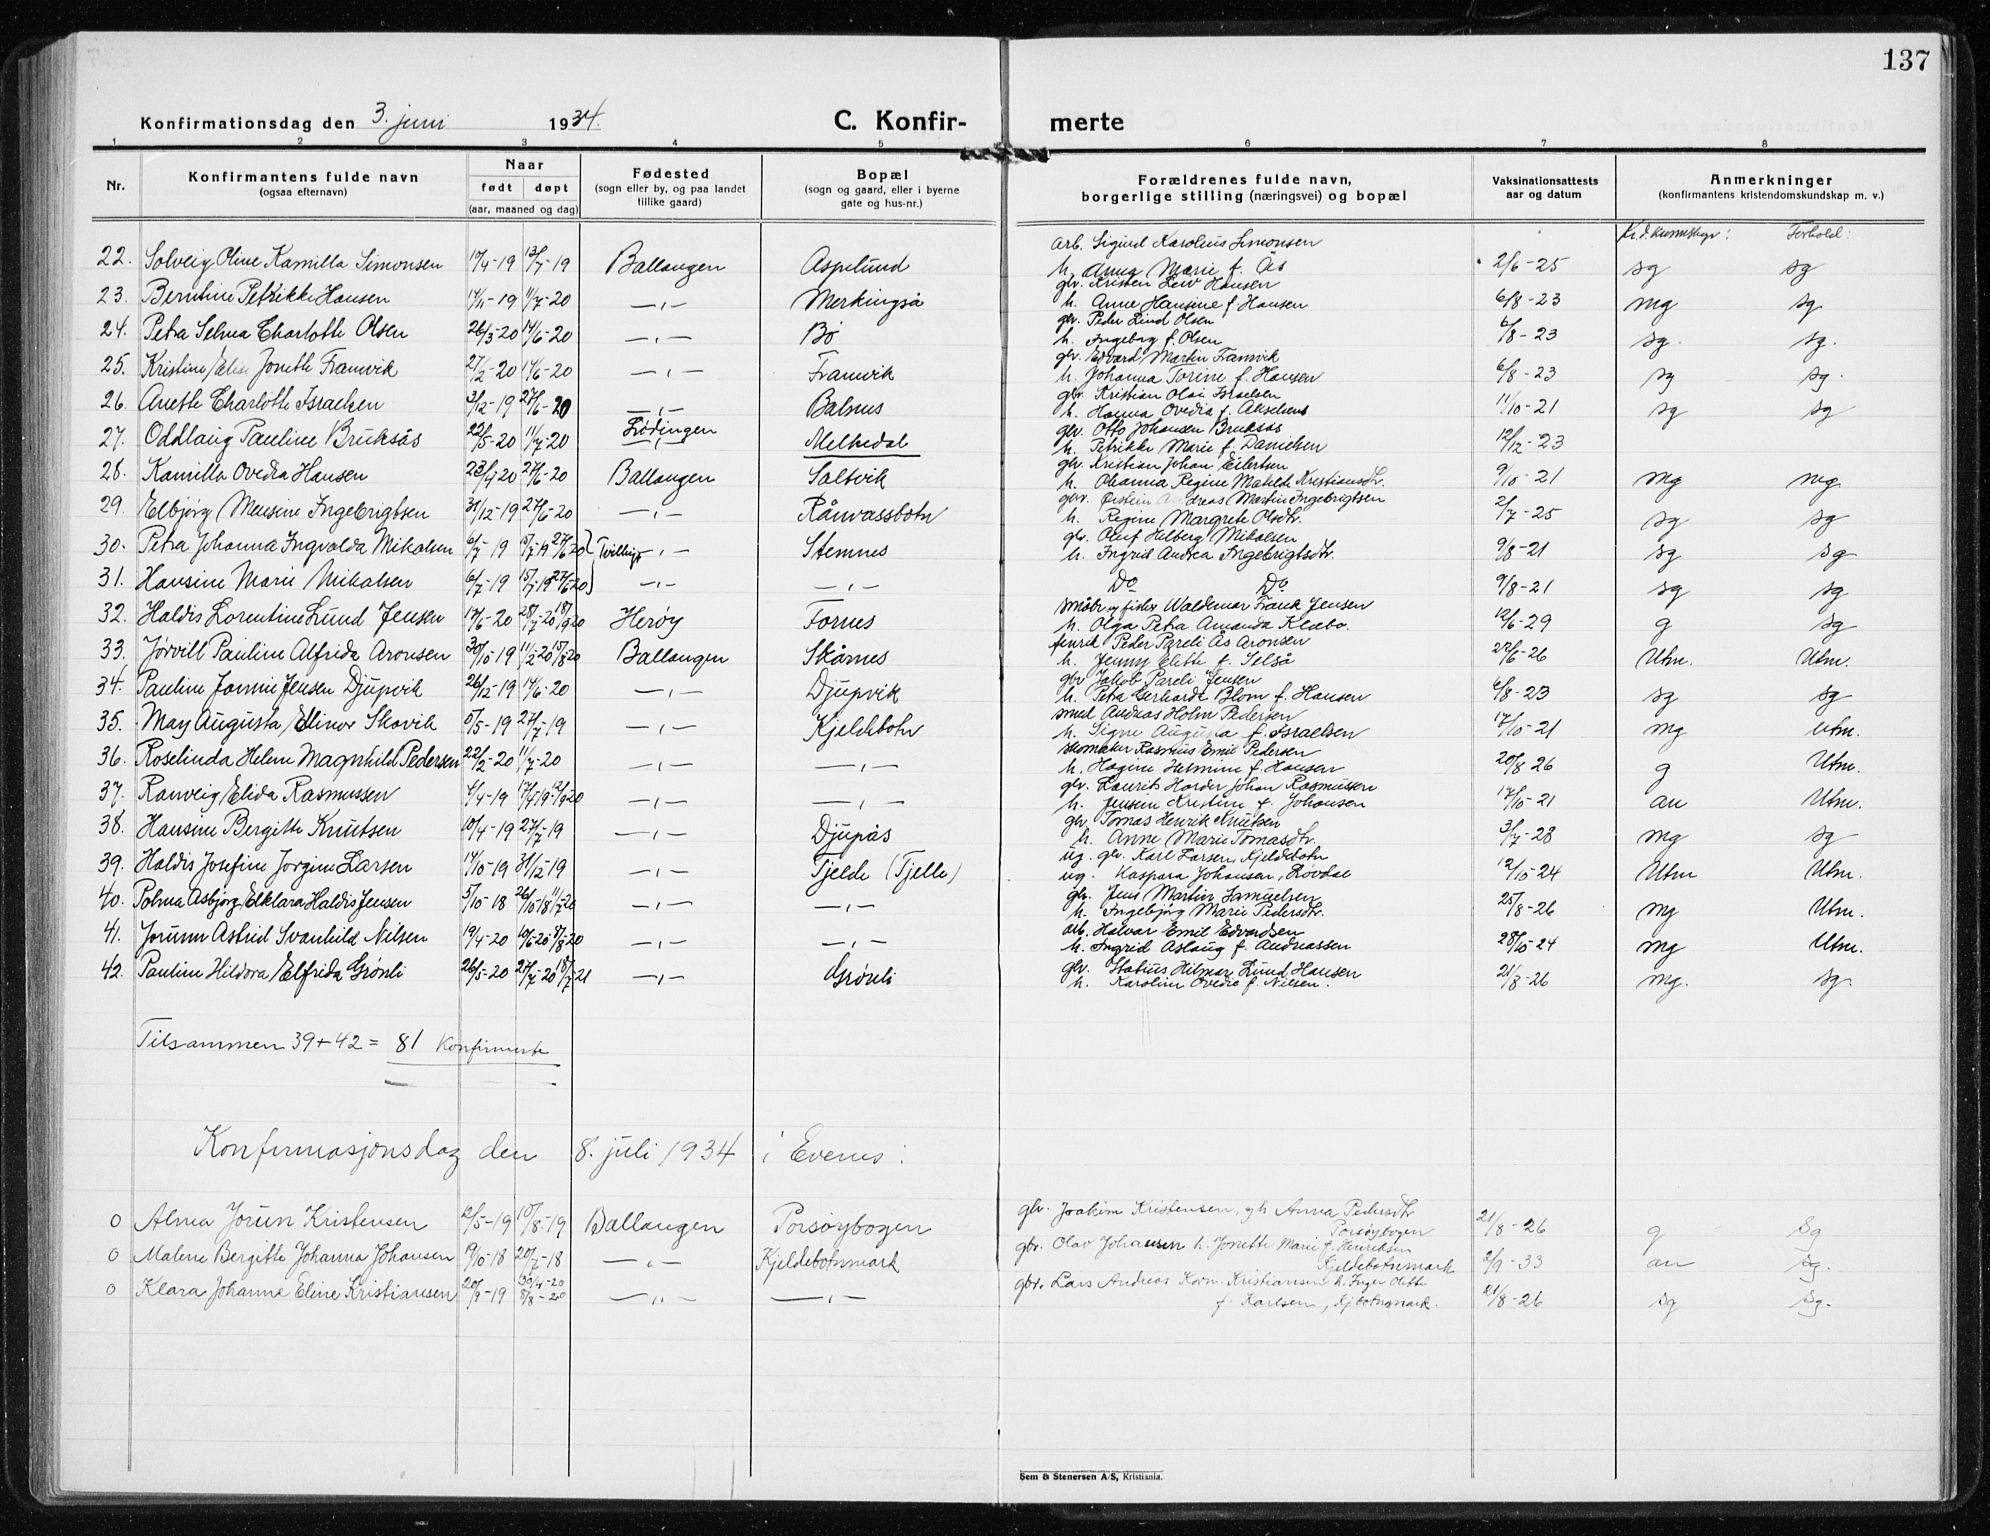 137
Konfirmationsdag den 3. juni 1934.
C. Konfirmerte
1 2 3 4 5 6 7 8
Nr. Konfirmantens fulde navn (ogsaa efternavn) Naar født døpt (aar, maaned og dag) Fødested (sogn eller by, og paa landet tillike gaard) Bopæl (sogn og gaard, eller i byerne gate og hus-nr.) Forældrenes fulde navn, borgerlige stilling (næringsvei) og bopæl Vaksinationsattests aar og datum Anmerkninger (konfirmantens kristendomskundskap m. v.)
Kr.d.kunnskap: Forhold:
22. Solveig Oline Kamilla Simonsen 10/4-19 13/7-19 Ballangen Aspelund arb. Sigurd Karolius Simonsen h. Anna Marie f. Ås 2/6-25 sg sg
23. Berntine Petrikke Hansen 14/11-19 11/7-20 —„— Merkingså gbr. Kristen Leiv Hansen h. Anne Hansine f. Hansen 6/8-23 mg sg
24. Petra Selma Charlotte Olsen 26/3-20 14/6-20 —„— Bø gbr. Peder Lind Olsen h. Ingeborg f. Olsen 6/8-23 sg. sg.
25. Kristine Elise Jonette Framvik 27/2-20 14/6-20 —„— Framvik gbr. Edvard Martin Framvik h. Johanna Torine f. Hansen 6/8-23 sg sg.
26. Anette Charlotte Israelsen 3/12-19 27/6-20 —„— Balsnes gbr. Kristian Olai Israelsen h. Hanna Ovedia f. Akselsens 11/10-21 sg sg
27. Oddlaug Pauline Bruksås 22/5-20 11/7-20 Lødingen —„— Melkedal gbr. Otto Johansen Bruksås h. Petrikke Marie f. Danielsen 12/12-23
28. Kamilla Ovedia Hansen 23/4-20 27/6-20 Ballangen Saltvik gbr. Kristian Johan Eilertsen h. Johanna Regine Matilde Kristiansdtr. 9/10-21 mg mg.
29. Elbjørg Mensine Ingebrigtsen 31/12-19 27/6-20 —„— Rånvassbotn gbr. Øistein Andreas Martin Ingebrigtsen h. Regine Margrete Olsdtr. 2/7-25 sg sg
30. Petra Johanna Ingvalda Mikalsen 6/7-19 15/7-19 27/6-20 Tvillinger —„— Stemnes gbr. Oluf Helberg Mikalsen h. Ingrid Andrea Ingebrigtsdtr. 9/8-21 sg sg
31. Hansine Marie Mikalsen 6/7-19 15/7-19 27/6-20 —„— —„— Do Do 9/8-21 sg sg
32. Haldis Lorentine Lund Jensen 17/6-20 28/7-20 18/9-20 Herøy Fornes småbr. og fisker Waldemar Frank Jensen h. Olga Petra Amanda Klæbo. 12/6-29 g sg
33. Jørvill Pauline Alfrida Aronsen 30/10-19 11/2-20 15/8-20 Ballangen Skårnes Peder Pareli Ås Aronsen h. Jenny Elette f. Selså 22/6-26 Utm. Utm.
34. Pauline Jonnie Jensen Djupvik 26/12-19 14/6-20 —„— Djupvik gbr Jakob Pareli Jensen h. Petra Gerharda Blom f. Hansen 6/8-23 sg sg
35. May Augusta Ellinor Skovik 5/5-19 27/7-19 —„— Kjeldebotn smed Andreas Holm Pedersen h. Signe Augusta f. Israelsen 17/10-21 mg Utm.
36. Roselinda Helene Magnhild Pedersen 22/2-20 11/7-20 —„— —„— skomaker Rasmus Emil Pedersen h. Hagine Helmine f. Hansen 20/8-26 g Utm.
37. Ranveig Elida Rasmussen 4/4-19 17/4-19 12/9-20 —„— —„— gbr. Laurits Harder Johan Rasmussen h. Jensen Kristine f. Johansen 17/10-21 an Utm.
38. Hansine Bergitte Knutsen 10/4-19 27/7-19 —„— Djupås gbr Tomas Henrik Knutsen h. Anne Marie Tomasdtr. 3/7-28 mg sg
39. Haldis Josefine Jorgine Larsen 14/10-19 31/12-19 —„— Tjelde (Tjelle) ug. gbr. Karl Larsen, Kjeldebotn ug. Kaspara Johansen, Røvdal 12/10-24 Utm Utm.
40. Polma Asbjørg Elklara Haldis Jensen 5/10-18 26/10-18 11/7-20 —„— —„— gbr. Jens Martin Samuelsen h. Ingebjørg Marie Pedersdtr. 25/8-26 mg Utm.
41. Jorunn Astrid Svanhild Nilsen 19/4-20 10/6-20 8/8-20 —„— —„— arb. Halvar Emil Edvardsen h. Ingrid Aslaug f. Andreassen 28/10-24 mg Utm.
42. Pauline Hildora Elfrida Grønli 26/5-20 27/7-20 18/7-21 —„— Grønli gbr. Statius Hilmar Lund Hansen h. Karoline Ovedia f. Nilsen. 21/8-26 mg. sg.
Tilsammen 39+42 = 81 konfirmerte
Konfirmasjonsdag den 8. juli 1934 i Evenes:
0 Alma Jorun Kristensen 12/5-19 10/8-19 Ballangen Porsøybogen gbr. Joakim Kristensen, gh Anna Pedersdtr Porsøybogen 21/8-26 g sg
0 Malene Bergitte Johanna Johansen 19/10-18 20/7-18 —„— Kjeldebotnmark gbr. Olav Johansen h. Jonette Marie f. Henriksen Kjeldebotnmark 2/9-33 an sg.
0 Klara Johanne Eline Kristiansen 20/9-19 30/4-20 8/8-20 —„— —„— gbr. Lars Andreas Korn. Kristiansen h. Inger Olette f. Karlsen, Kj.botnmark. 21/8-26 sg sg.
Sem & Stenersen A/S, Kristiania.